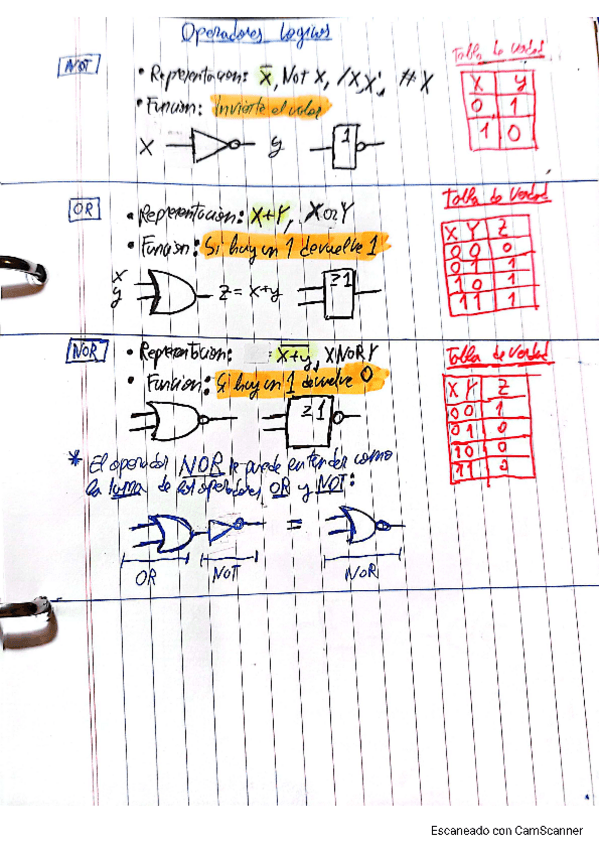 Operadores Logicos
NOT
• Representacion: X̅, Not X, /X, X', #X
• Funcion: Invierte el valor
X y 1
Tabla de verdad
X Y
0 1
1 0
OR
• Representacion: X+Y, X or Y
• Funcion: Si hay un 1 devuelve 1
X
y Z = X+y ≥1
Tabla de verdad
X Y Z
0 0 0
0 1 1
1 0 1
1 1 1
NOR
• Representacion: X+y, X NOR Y
• Funcion: Si hay un 1 devuelve 0
≥1
Tabla de verdad
X Y Z
0 0 1
0 1 0
1 0 0
1 1 0
* El operador NOR se puede entender como
la suma de los operadores OR y NOT:
=
OR NOT NOR
Escaneado con CamScanner